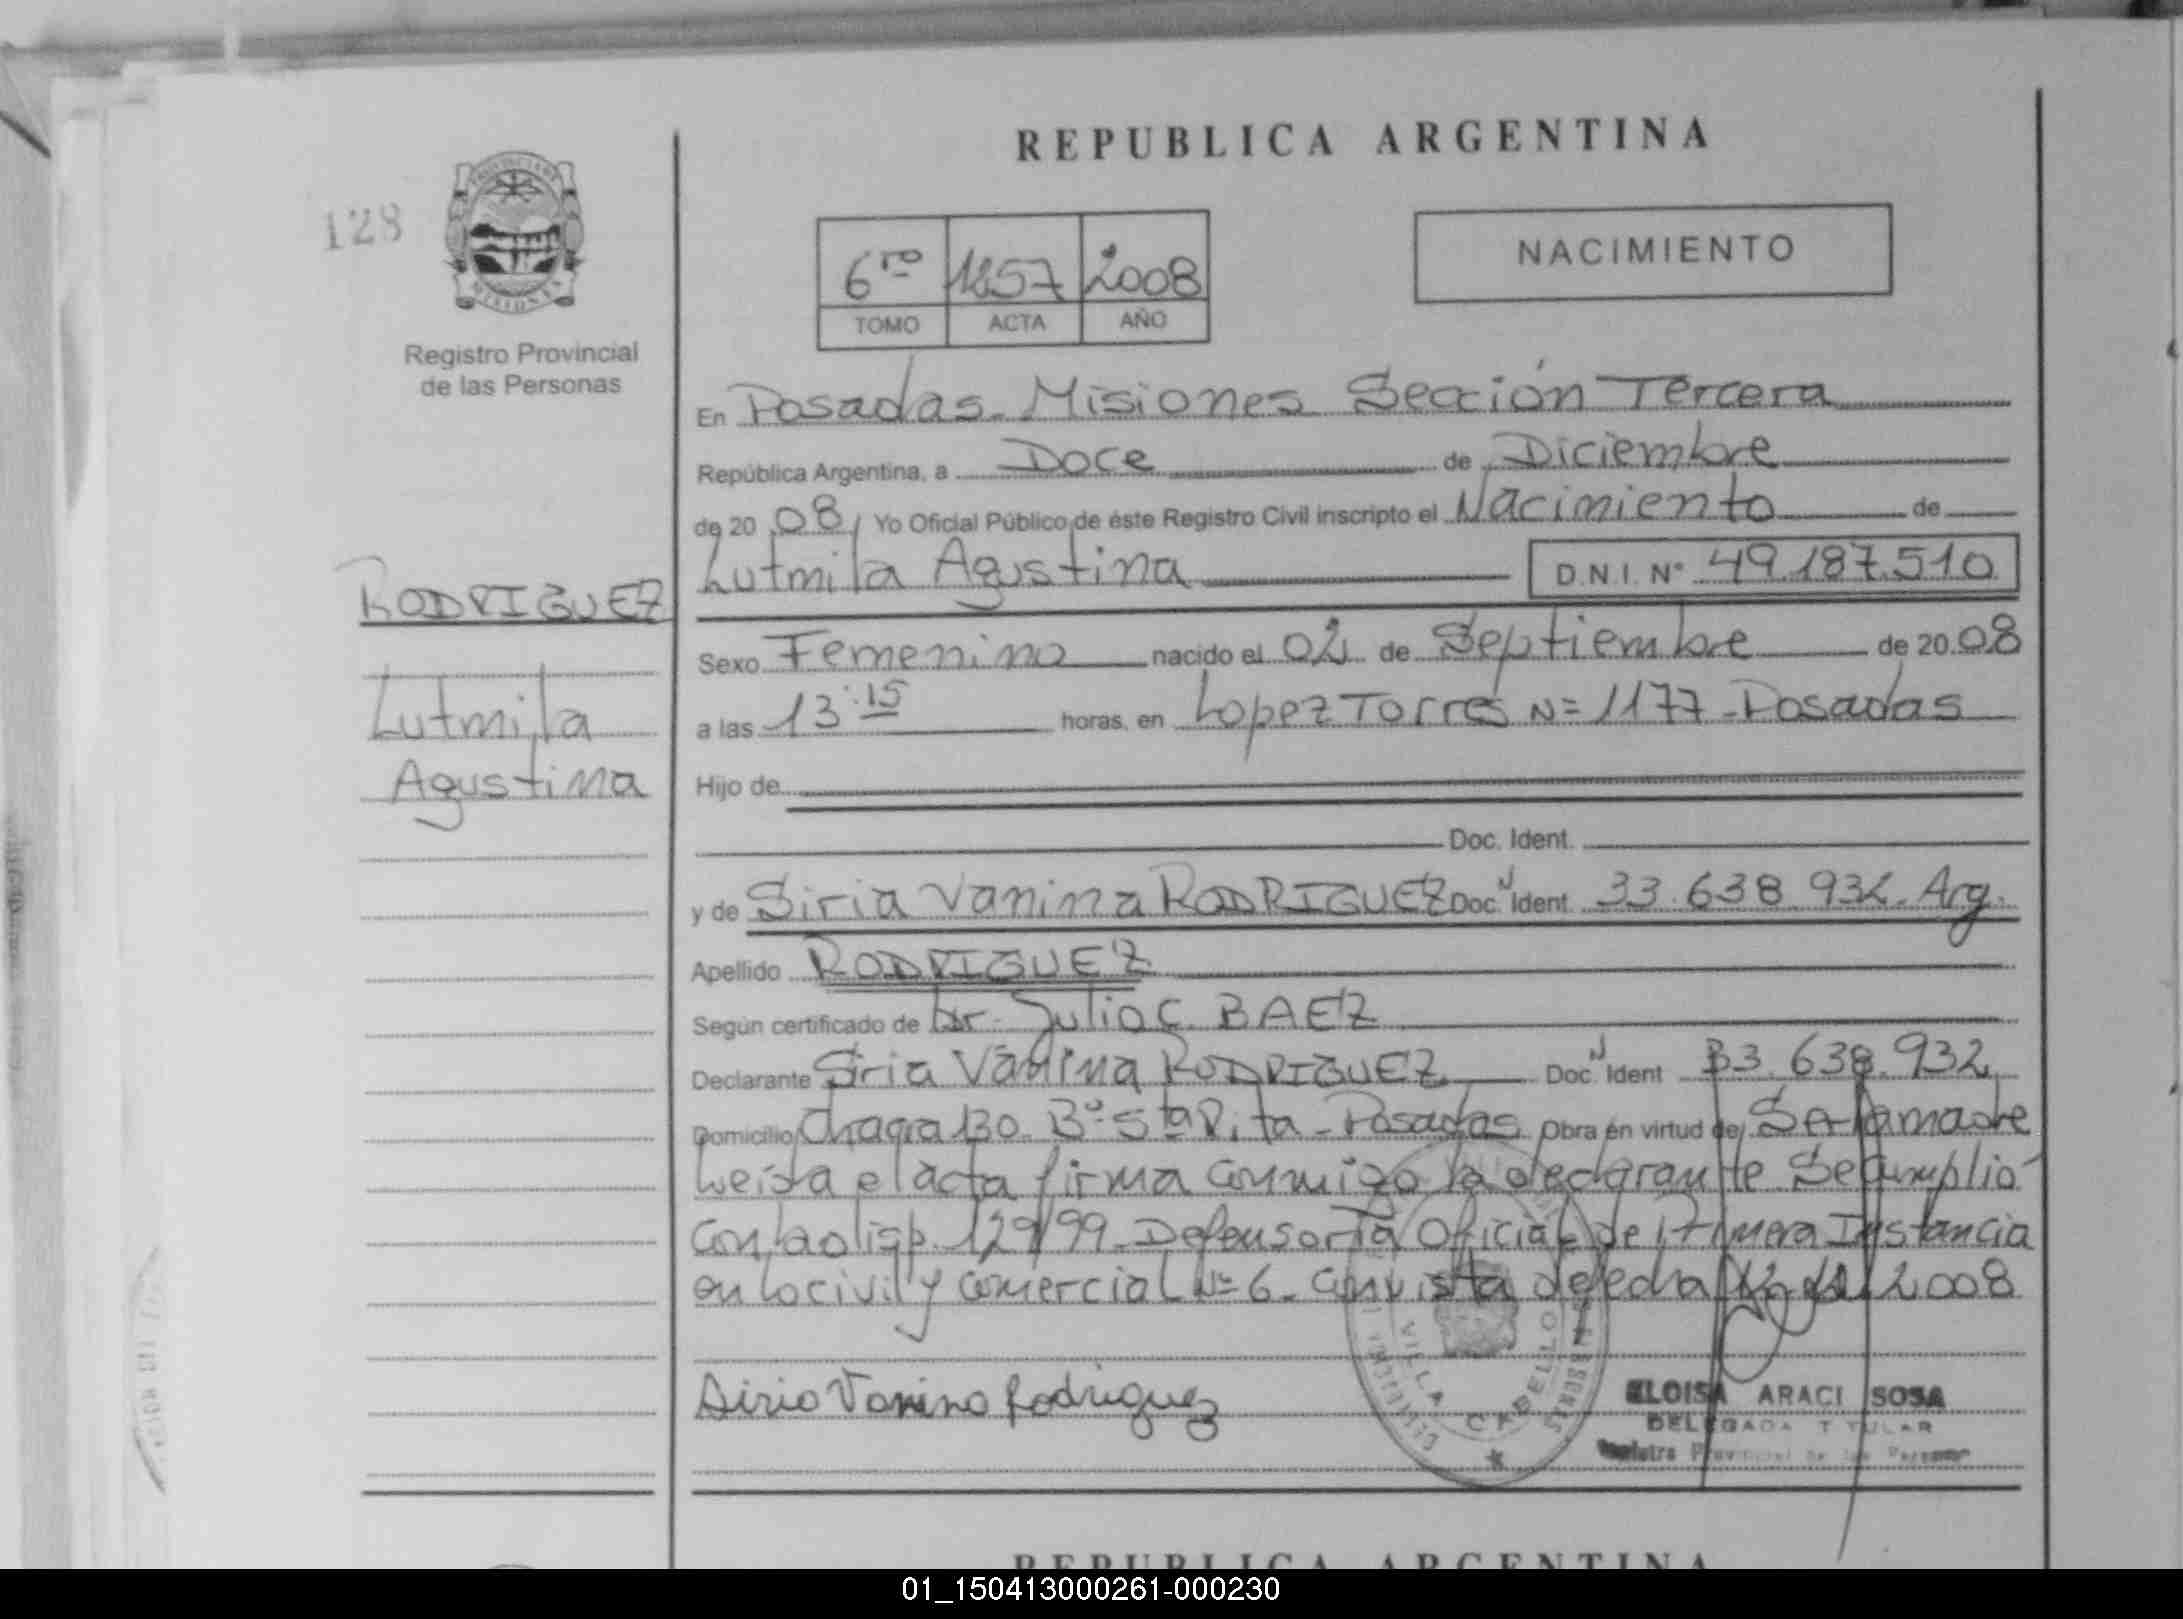 REPUBLICA ARGENTINA
128
PROVINCIA DE
MISIONES
Registro Provincial
de las Personas
6ro 1257 2008
TOMO ACTA AÑO
NACIMIENTO
En Posadas - Misiones Sección Tercera
República Argentina, a Doce de Diciembre
de 20 08, Yo Oficial Público de éste Registro Civil inscripto el Nacimiento de
Lutmila Agustina D.N.I. Nº 49.187.510
RODRIGUEZ
Lutmila
Agustina
Sexo Femenino nacido el 02 de Septiembre de 20 08
a las 13:15 horas, en Lopez Torres N= 1177 - Posadas
Hijo de
Doc. Ident.
y de Siria Vanina RODRIGUEZ Doc. Ident. 33.638.932. Arg.
Apellido RODRIGUEZ
Según certificado de Dr. Julio C. BAEZ
Declarante Siria Vanina RODRIGUEZ Doc. Ident 33.638.932
Domicilio Chacra 130. Bº Sta Rita - Posadas Obra en virtud de Ser la madre
Leída el acta firma conmigo la declarante Se cumplió
con la disp. 129/99. Defensoría Oficial de Primera Instancia
en lo civil y comercial Nº 6. con vista de fecha 2008
Siria Vanina Rodriguez
VILLA CABELLO
ELOISA ARACI SOSA
DELEGADA TITULAR
Registro Provincial de las Personas
REPUBLICA ARGENTINA
01_150413000261-000230